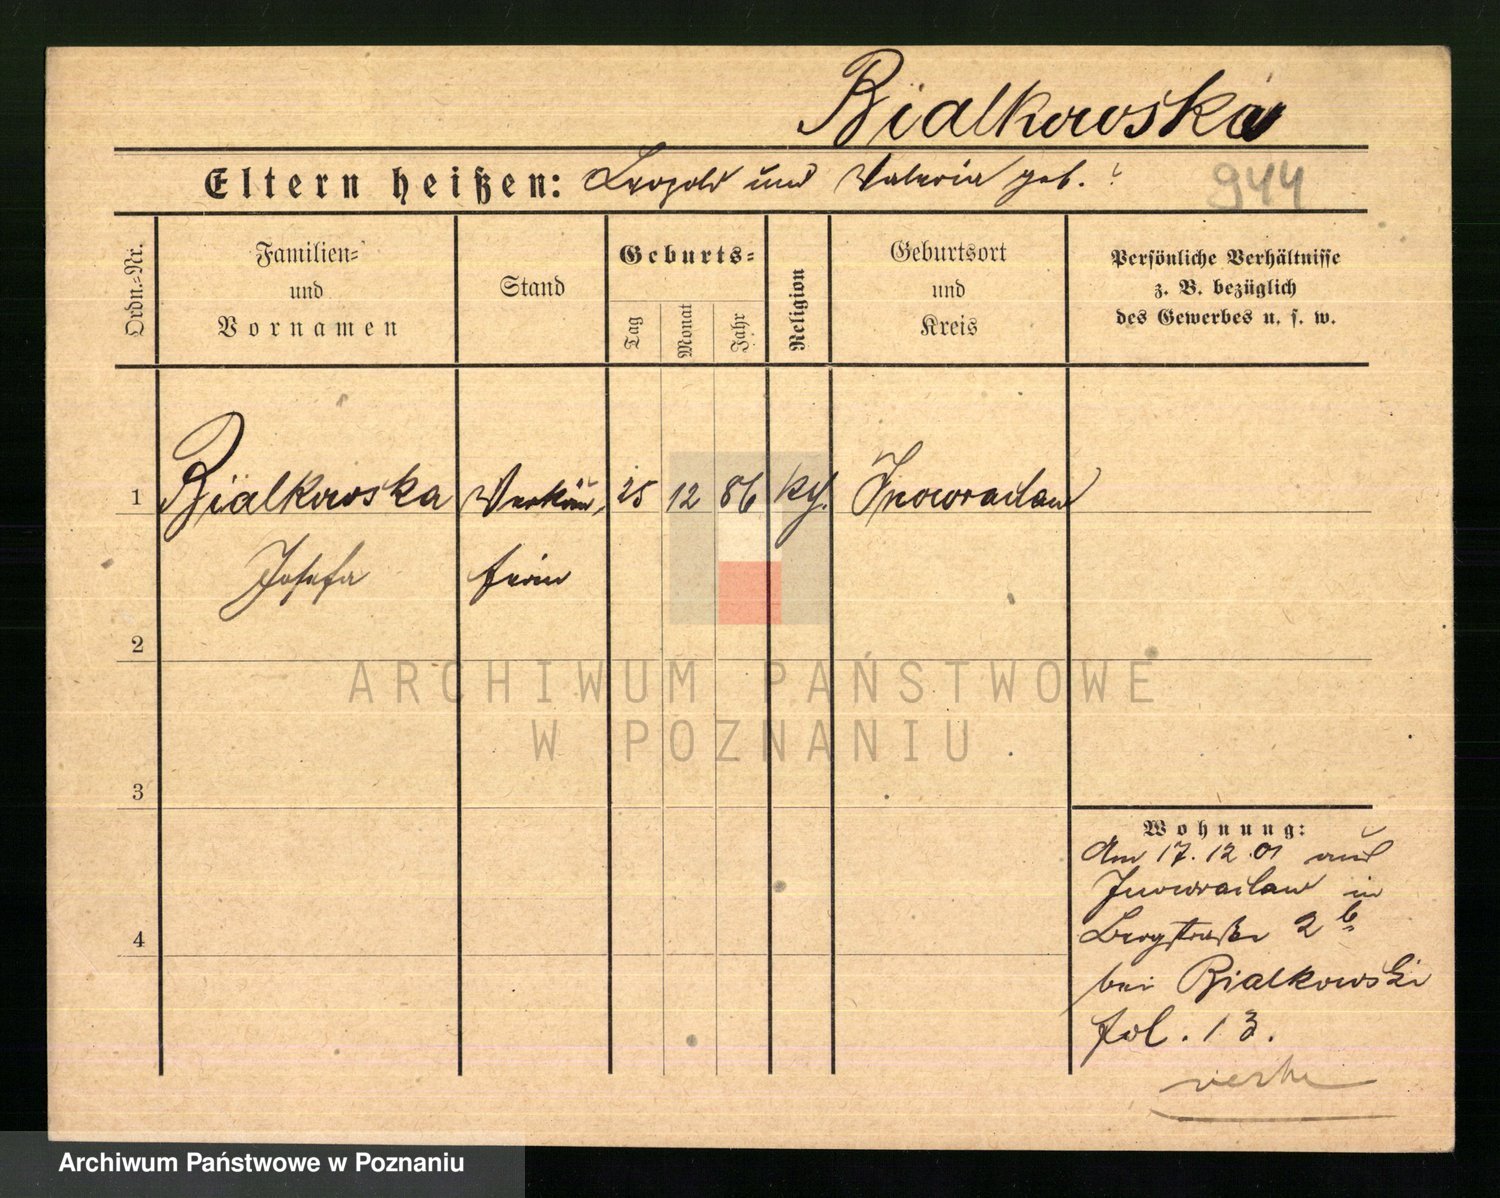 Bialkowska
Eltern heißen: Leopold und Valeria geb. ?
944
Ordn.-Nr.
Familien-
und
Vornamen
Stand
Geburts-
Tag
Monat
Jahr
Religion
Geburtsort
und
Kreis
Persönliche Verhältnisse
z. B. bezüglich
des Gewerbes u. s. w.
1 Bialkowska Verkäu- 25 12 86 Inowraclaw
Josefa ferin
2
3
4
ARCHIWUM PAŃSTWOWE
W POZNANIU
Wohnung:
Am 17.12.01 aus
Inowraclaw in
Bergstraße 2b
bei Bialkowski
fol. 13.
Archiwum Państwowe w Poznaniu